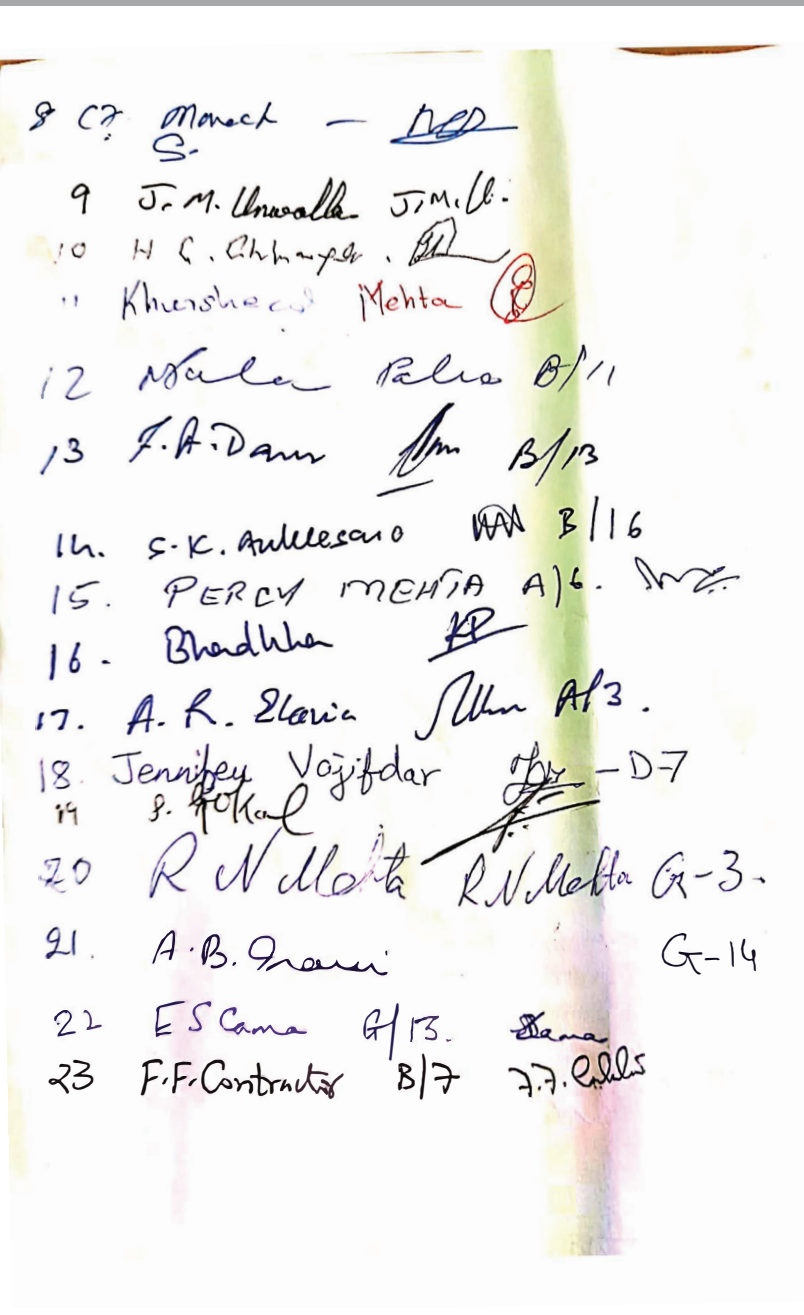 8 C7 Monech —
S.
9 J. M. Unwalla J.M.U.
10 H C.
11 Khursheed Mehta
12 Nala Palia B/11
13 F.A. Daruv B/13
14. S.K. Anklesaria B/16
15. PERCY MEHTA A/6.
16. Bhadha
17. A. R. Elavia A/3.
18. Jennifey Vajifdar — D-7
19 S. GoKal
20 R N Mehta R N Mehta G-3.
21. A.B. Irani G-14
22 E S Cama G/13. Sama
23 F.F. Contractor B/7